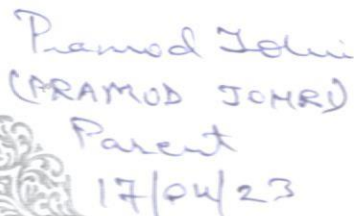 Pramod Johri
(PRAMOD JOHRI)
Parent
17/04/23